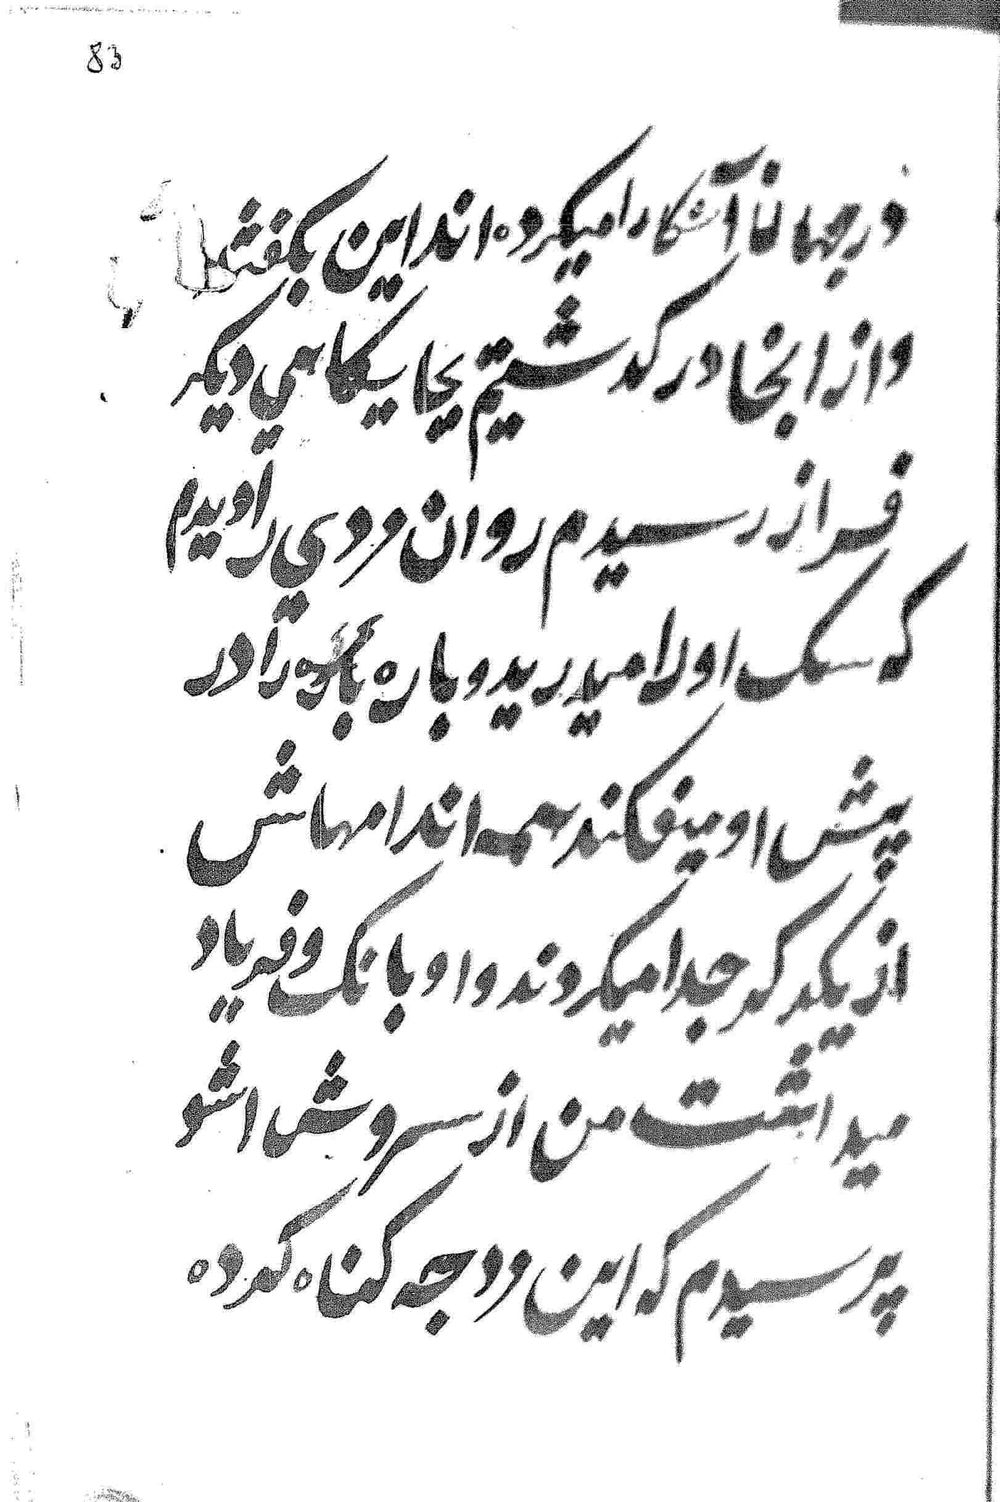 83
در جهانا آشکارا میکرده اند این بگفتند
و از انجا در گذشتیم بجایگاهی دیگر
فراز رسیدم روان مردی را دیدم
که سک او را میدرید و باره باره را در
پیش او میفکند همه اندامهاش
از یکدگر جدا میکردند و او بانک و فریاد
میداشت من از سروش اشو
پرسیدم که این مرد چه کناه کرده